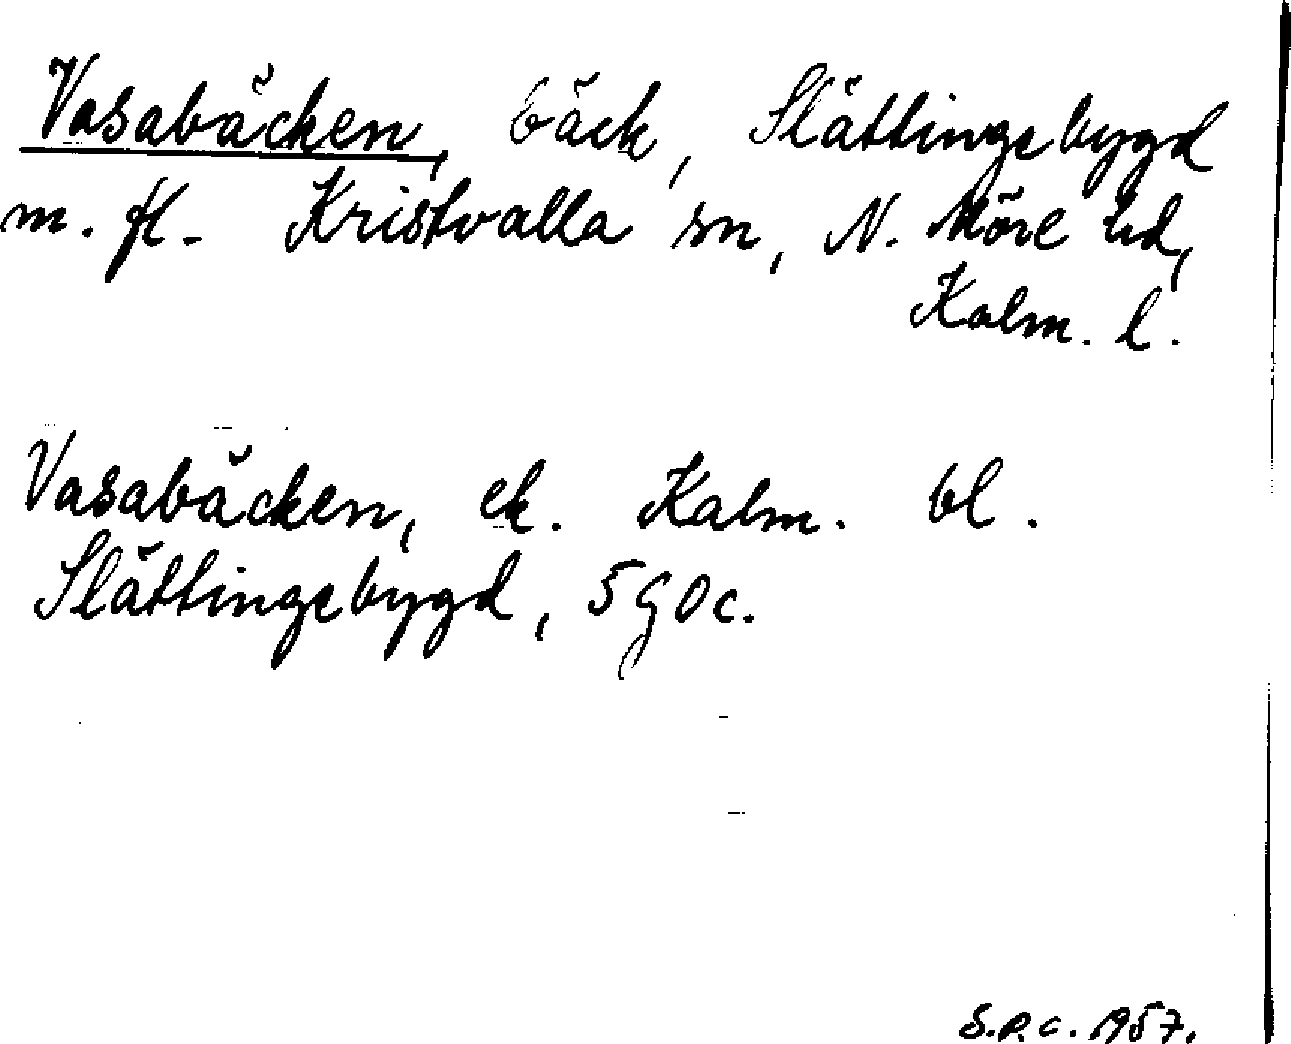 Vasabäcken, bäck, Slättingebygd
m. fl. Kristvalla sn, N. Möre hd,
Kalm. l.
Vasabäcken, ek. Kalm. bl.
Slättingebygd, 5 G 0 c.
S.P.C. 1957.